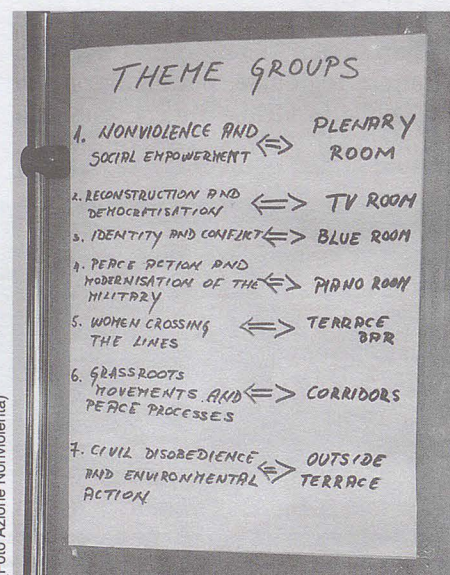 THEME GROUPS
1. NONVIOLENCE AND
SOCIAL EMPOWERMENT <=> PLENARY
ROOM
2. RECONSTRUCTION AND
DEMOCRATISATION <=> TV ROOM
3. IDENTITY AND CONFLICT <=> BLUE ROOM
4. PEACE ACTION AND
MODERNISATION OF THE
MILITARY <=> PIANO ROOM
5. WOMEN CROSSING
THE LINES <=> TERRACE
BAR
6. GRASSROOTS
MOVEMENTS AND
PEACE PROCESSES <=> CORRIDORS
7. CIVIL DISOBEDIENCE
AND ENVIRONMENTAL
ACTION <=> OUTSIDE
TERRACE
Foto Azione Nonviolenta)